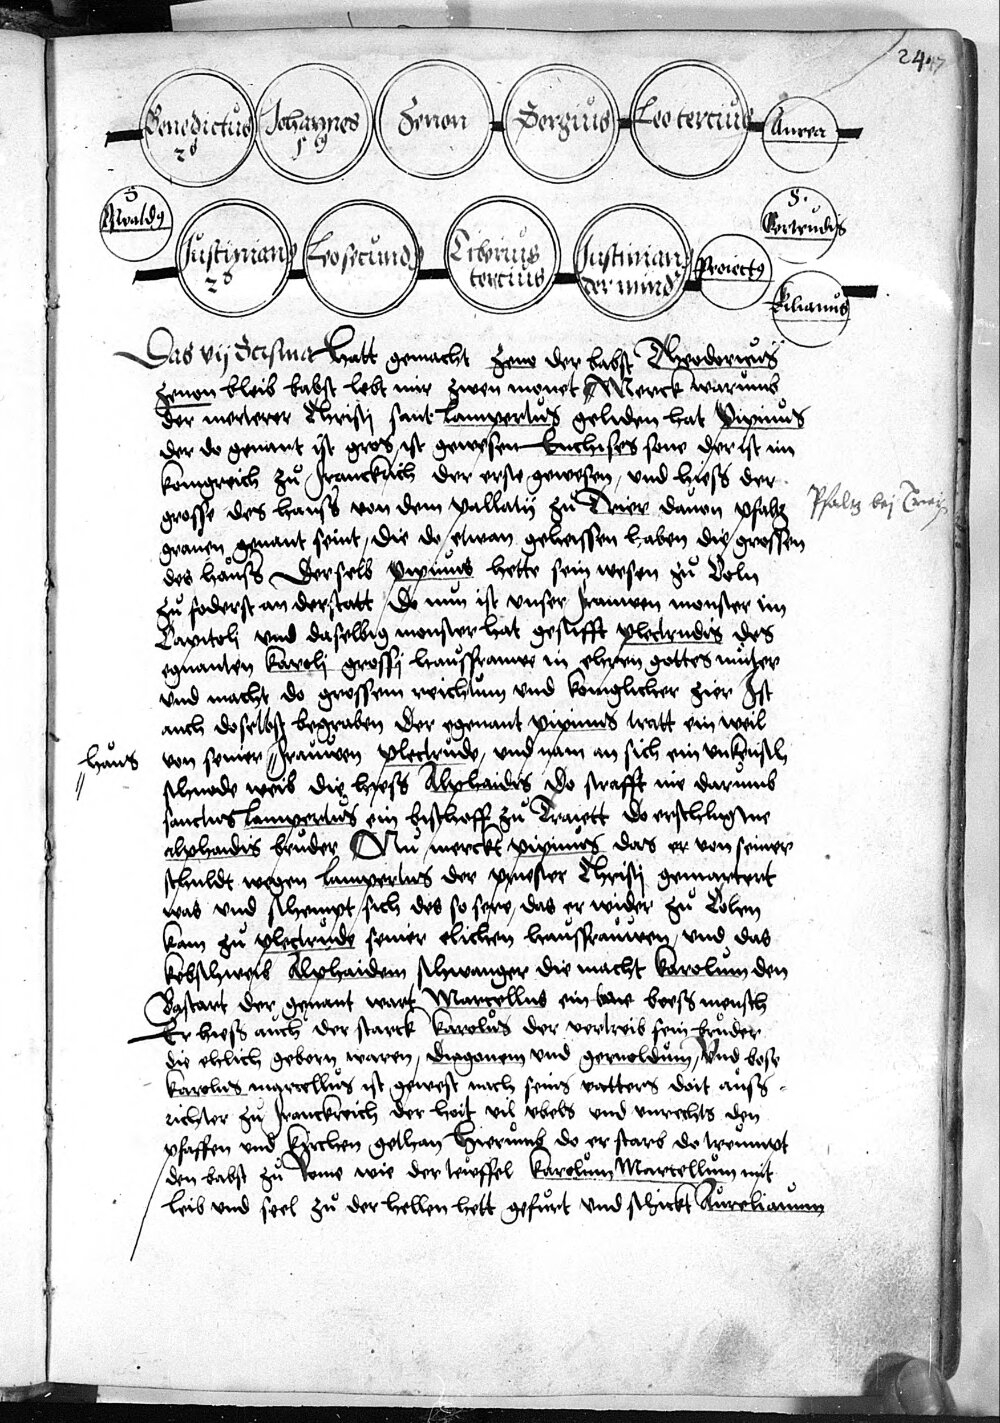 247
Benedictus 2us
Johannes 5 us
Zenon
Sergius
Leo tercius
Aurea
S Waldus
Justinianus 2us
Leo secundus
Tiberius tercius
Justinianus der mind
Proiectus
S. Gertrudis
Kilianus
Das vij Scisma Hatt gemacht Zeno der babst Theodoricus
Zenon bleib babst lebt nur zwen monet Merck warumb
der merterer Christi sant Lampertus geliden hat Pipinus
der do genant ist gros, ist gewesen Anchises sone der ist im
konigreich zu Franckrich der erste gewesen, und hiess der
grosse des hauss von dem pallatij zu Trier dauon pfaltz
Pfaltz bej Trier
grauen genant seint, die do etwan geheissen haben die grossen
des hauss Derselb Pipinus hette sein wesen zu Coln
zu foderst an der statt Do nun ist unser frauwen monster im
Capitolj und daselbig monster hat gestifft Plectrudis des
egnanten Karolj grossj haussfrauwe in ehren gottes muter
und macht do grossem reichtum und koniglicher zier Ist
auch doselbst begraben Der egenant Pipinus tratt ein weil
haus
von seiner frauwen Plectrude, und nam an sich ein unkeusch
schnode weib die hiess Alphaidis Do strafft ine darumb
sanctus Lampertus ein bischoff zu Traiett do erschlug ine
Alphaidis bruder Nu merckt Pipinus das er von seiner
schuldt wegen Lampertus der priester Christj gemartert
was und schempt sich des so sere, das er wider zu Colen
kam zu Plectrude seiner elichen haussfrauwen, und das
kebschweib Alphaidem schwanger die macht Karolum den
Bastart der genant wart Marcellus ein boess mensch
Er hiess auch der starck Karolus der vertreib sein bruder
die ehlich geborn waren, Dragonem und Gernoldum, Und dose
Karolus Marcellus ist gewest nach seins vatters doit auss-
richter zu Franckreich der hoit vil ubels und unrechts den
pfaffen und kirchen gethan Hierumb do er starb do treumpt
den babst zu Rome wie der teuffel Karolum Marcellum mit
leib und seel zu der hellen hett gefurt und schickt Aurelianum